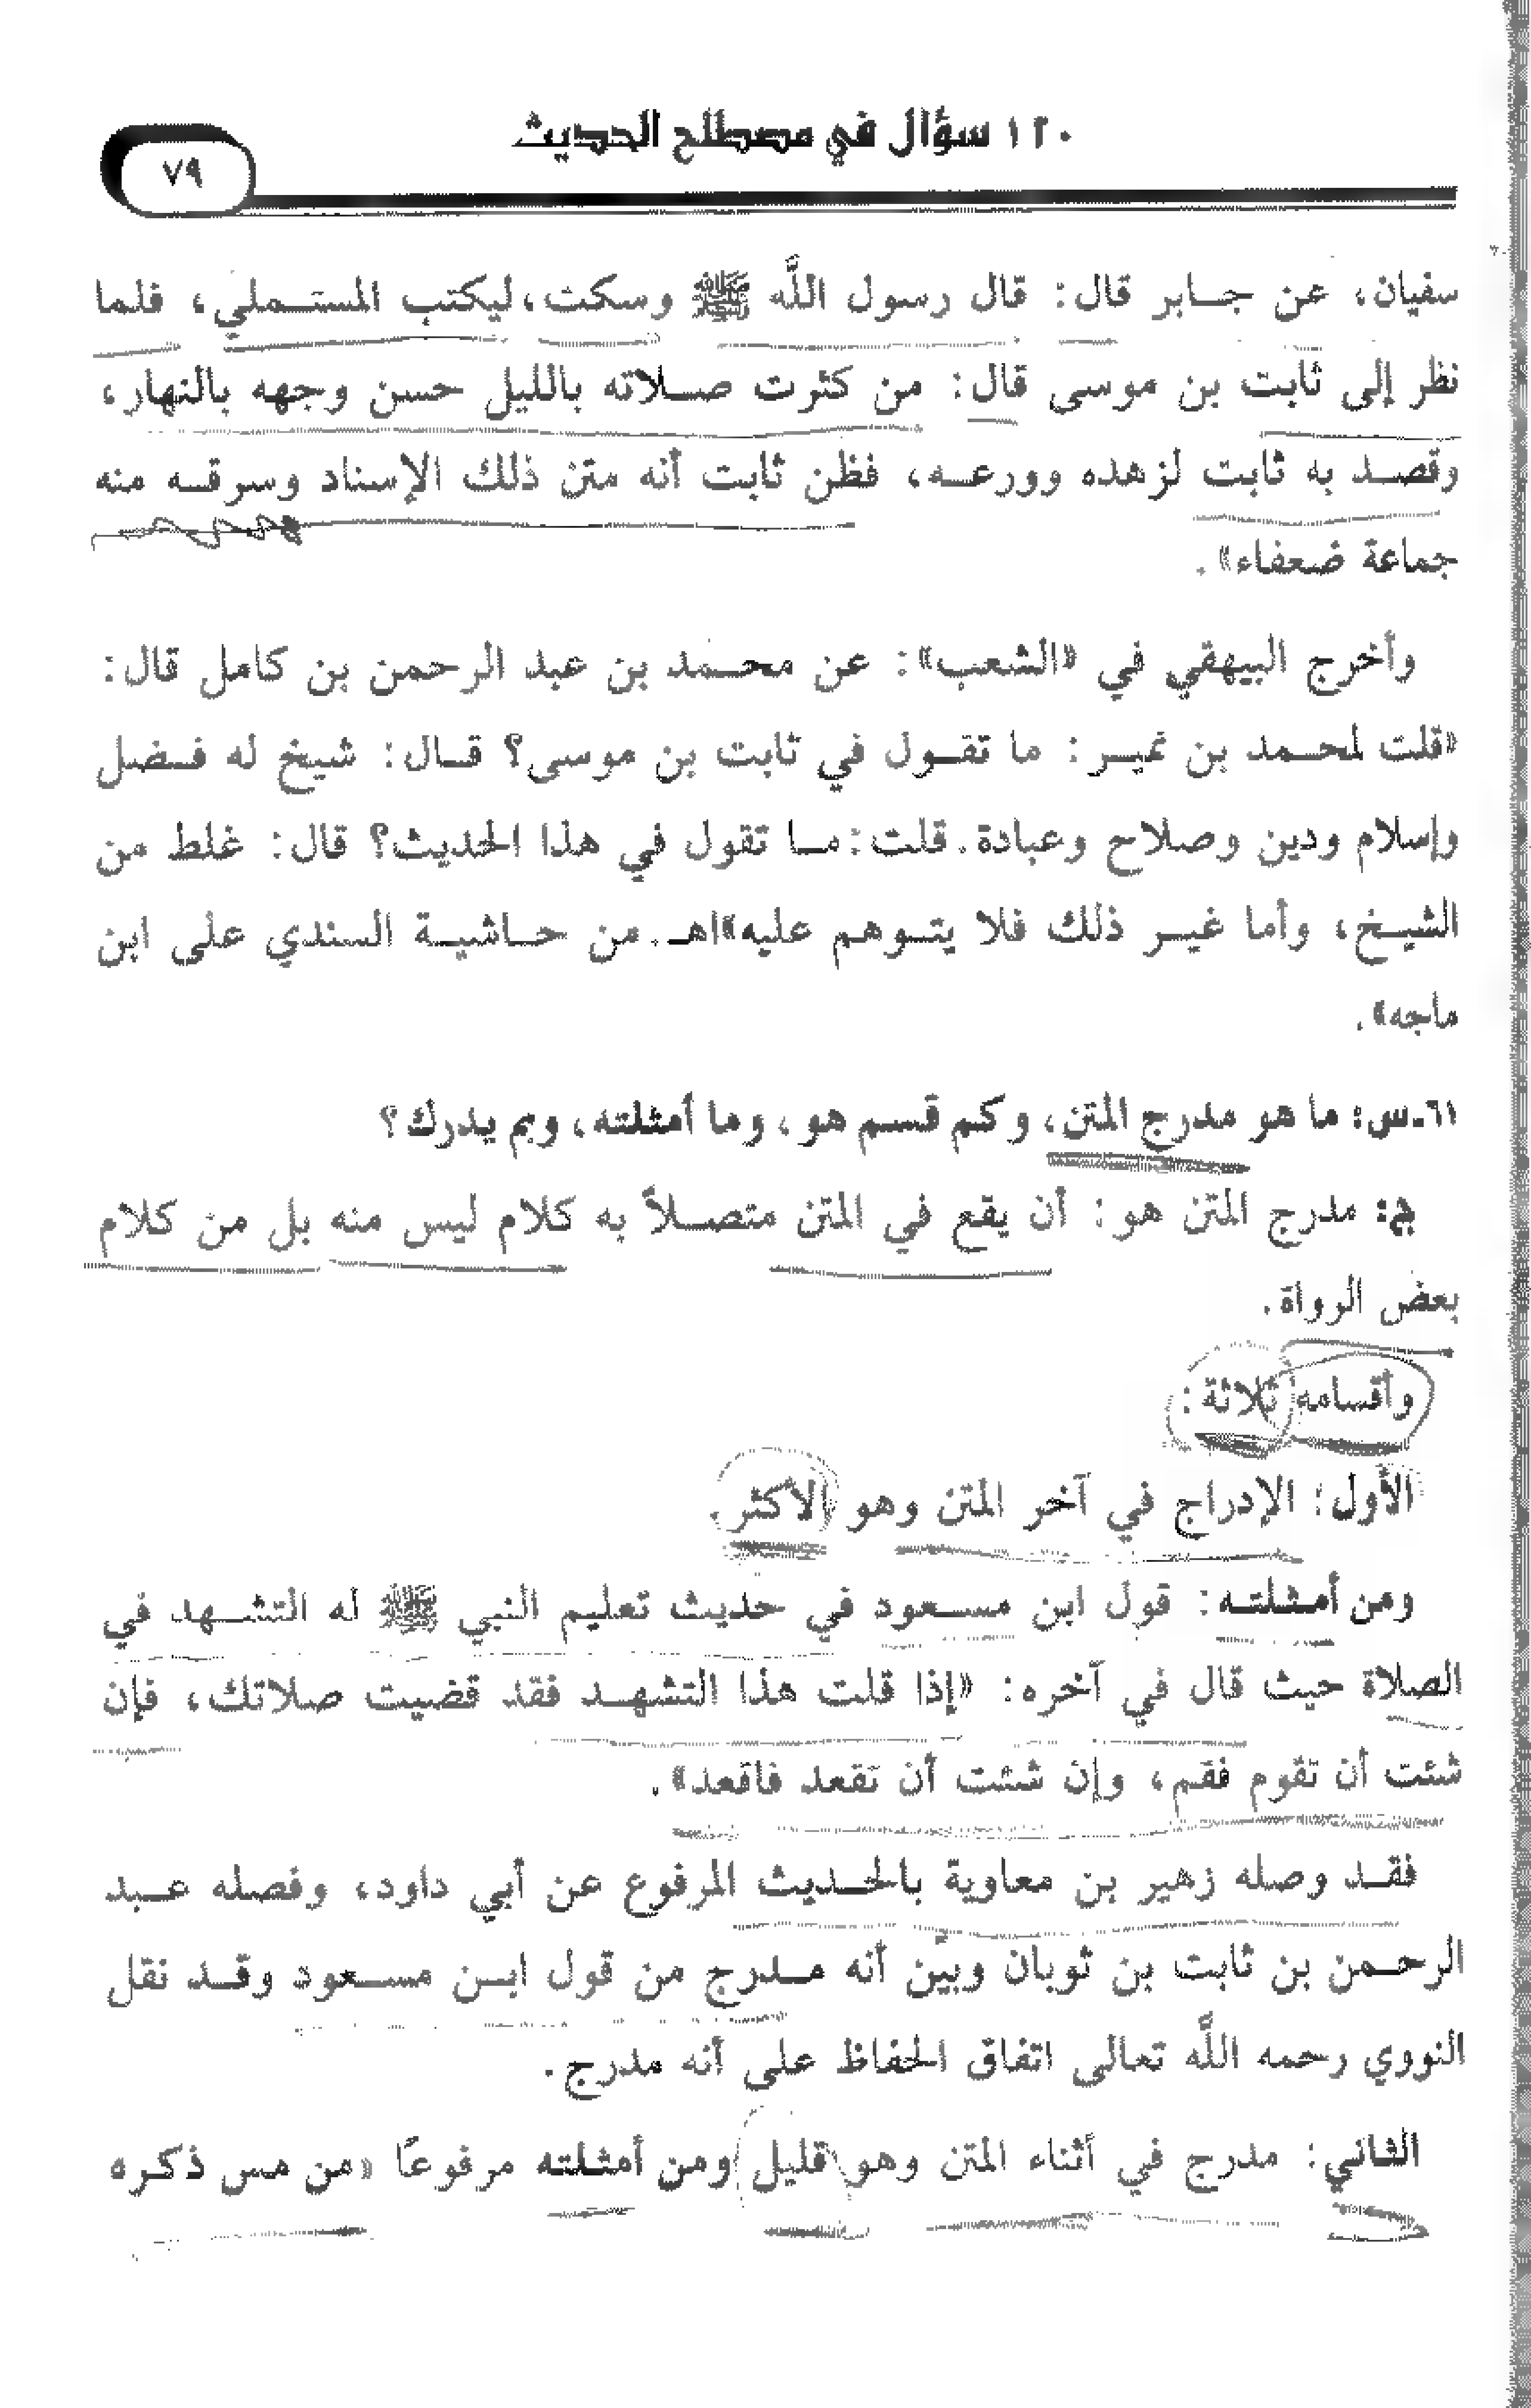 ١٢٠ سؤال في مصطلح الحديث
٧٩
سفيان، عن جابر قال: قال رسول اللَّه ﷺ وسكت، ليكتب المستملي، فلما
نظر إلى ثابت بن موسى قال: من كثرت صلاته بالليل حسن وجهه بالنهار،
وقصد به ثابت لزهده وورعه، فظن ثابت أنه متن ذلك الإسناد وسرقه منه
جماعة ضعفاء».
وأخرج البيهقي في «الشعب»: عن محمد بن عبد الرحمن بن كامل قال:
«قلت لمحمد بن نمير: ما تقول في ثابت بن موسى؟ قال: شيخ له فضل
وإسلام ودين وصلاح وعبادة. قلت: ما تقول في هذا الحديث؟ قال: غلط من
الشيخ، وأما غير ذلك فلا يتوهم عليه»اهـ. من حاشية السندي على ابن
ماجه».
٦١ـ س: ما هو مدرج المتن، وكم قسم هو، وما أمثلته، وبم يدرك؟
ج: مدرج المتن هو: أن يقع في المتن متصلاً به كلام ليس منه بل من كلام
بعض الرواة.
وأقسامه ثلاثة:
الأول: الإدراج في آخر المتن وهو الأكثر.
ومن أمثلته: قول ابن مسعود في حديث تعليم النبي ﷺ له التشهد في
الصلاة حيث قال في آخره: «إذا قلت هذا التشهد فقد قضيت صلاتك، فإن
شئت أن تقوم فقم، وإن شئت أن تقعد فاقعد».
فقد وصله زهير بن معاوية بالحديث المرفوع عن أبي داود، وفصله عبد
الرحمن بن ثابت بن ثوبان وبيَّن أنه مدرج من قول ابن مسعود وقد نقل
النووي رحمه اللَّه تعالى اتفاق الحفاظ على أنه مدرج.
الثاني: مدرج في أثناء المتن وهو قليل ومن أمثلته مرفوعًا «من مس ذكره